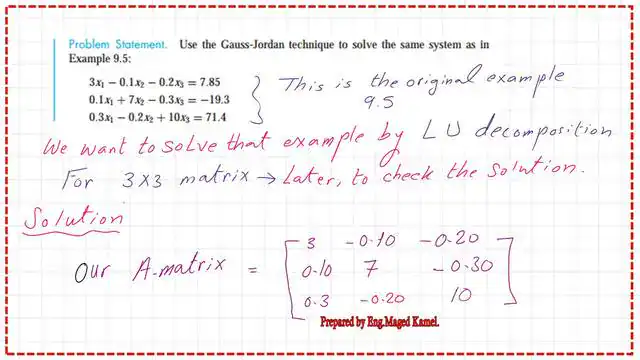 Problem Statement. Use the Gauss-Jordan technique to solve the same system as in
Example 9.5:
3x₁ − 0.1x₂ − 0.2x₃ = 7.85
0.1x₁ + 7x₂ − 0.3x₃ = −19.3
0.3x₁ − 0.2x₂ + 10x₃ = 71.4
This is the original example
9.5
We want to solve that example by LU decomposition
For 3x3 matrix → Later, to check the solution.
Solution
Our A-matrix =
3 -0.10 -0.20
0.10 7 -0.30
0.3 -0.20 10
Prepared by Eng.Maged Kamel.